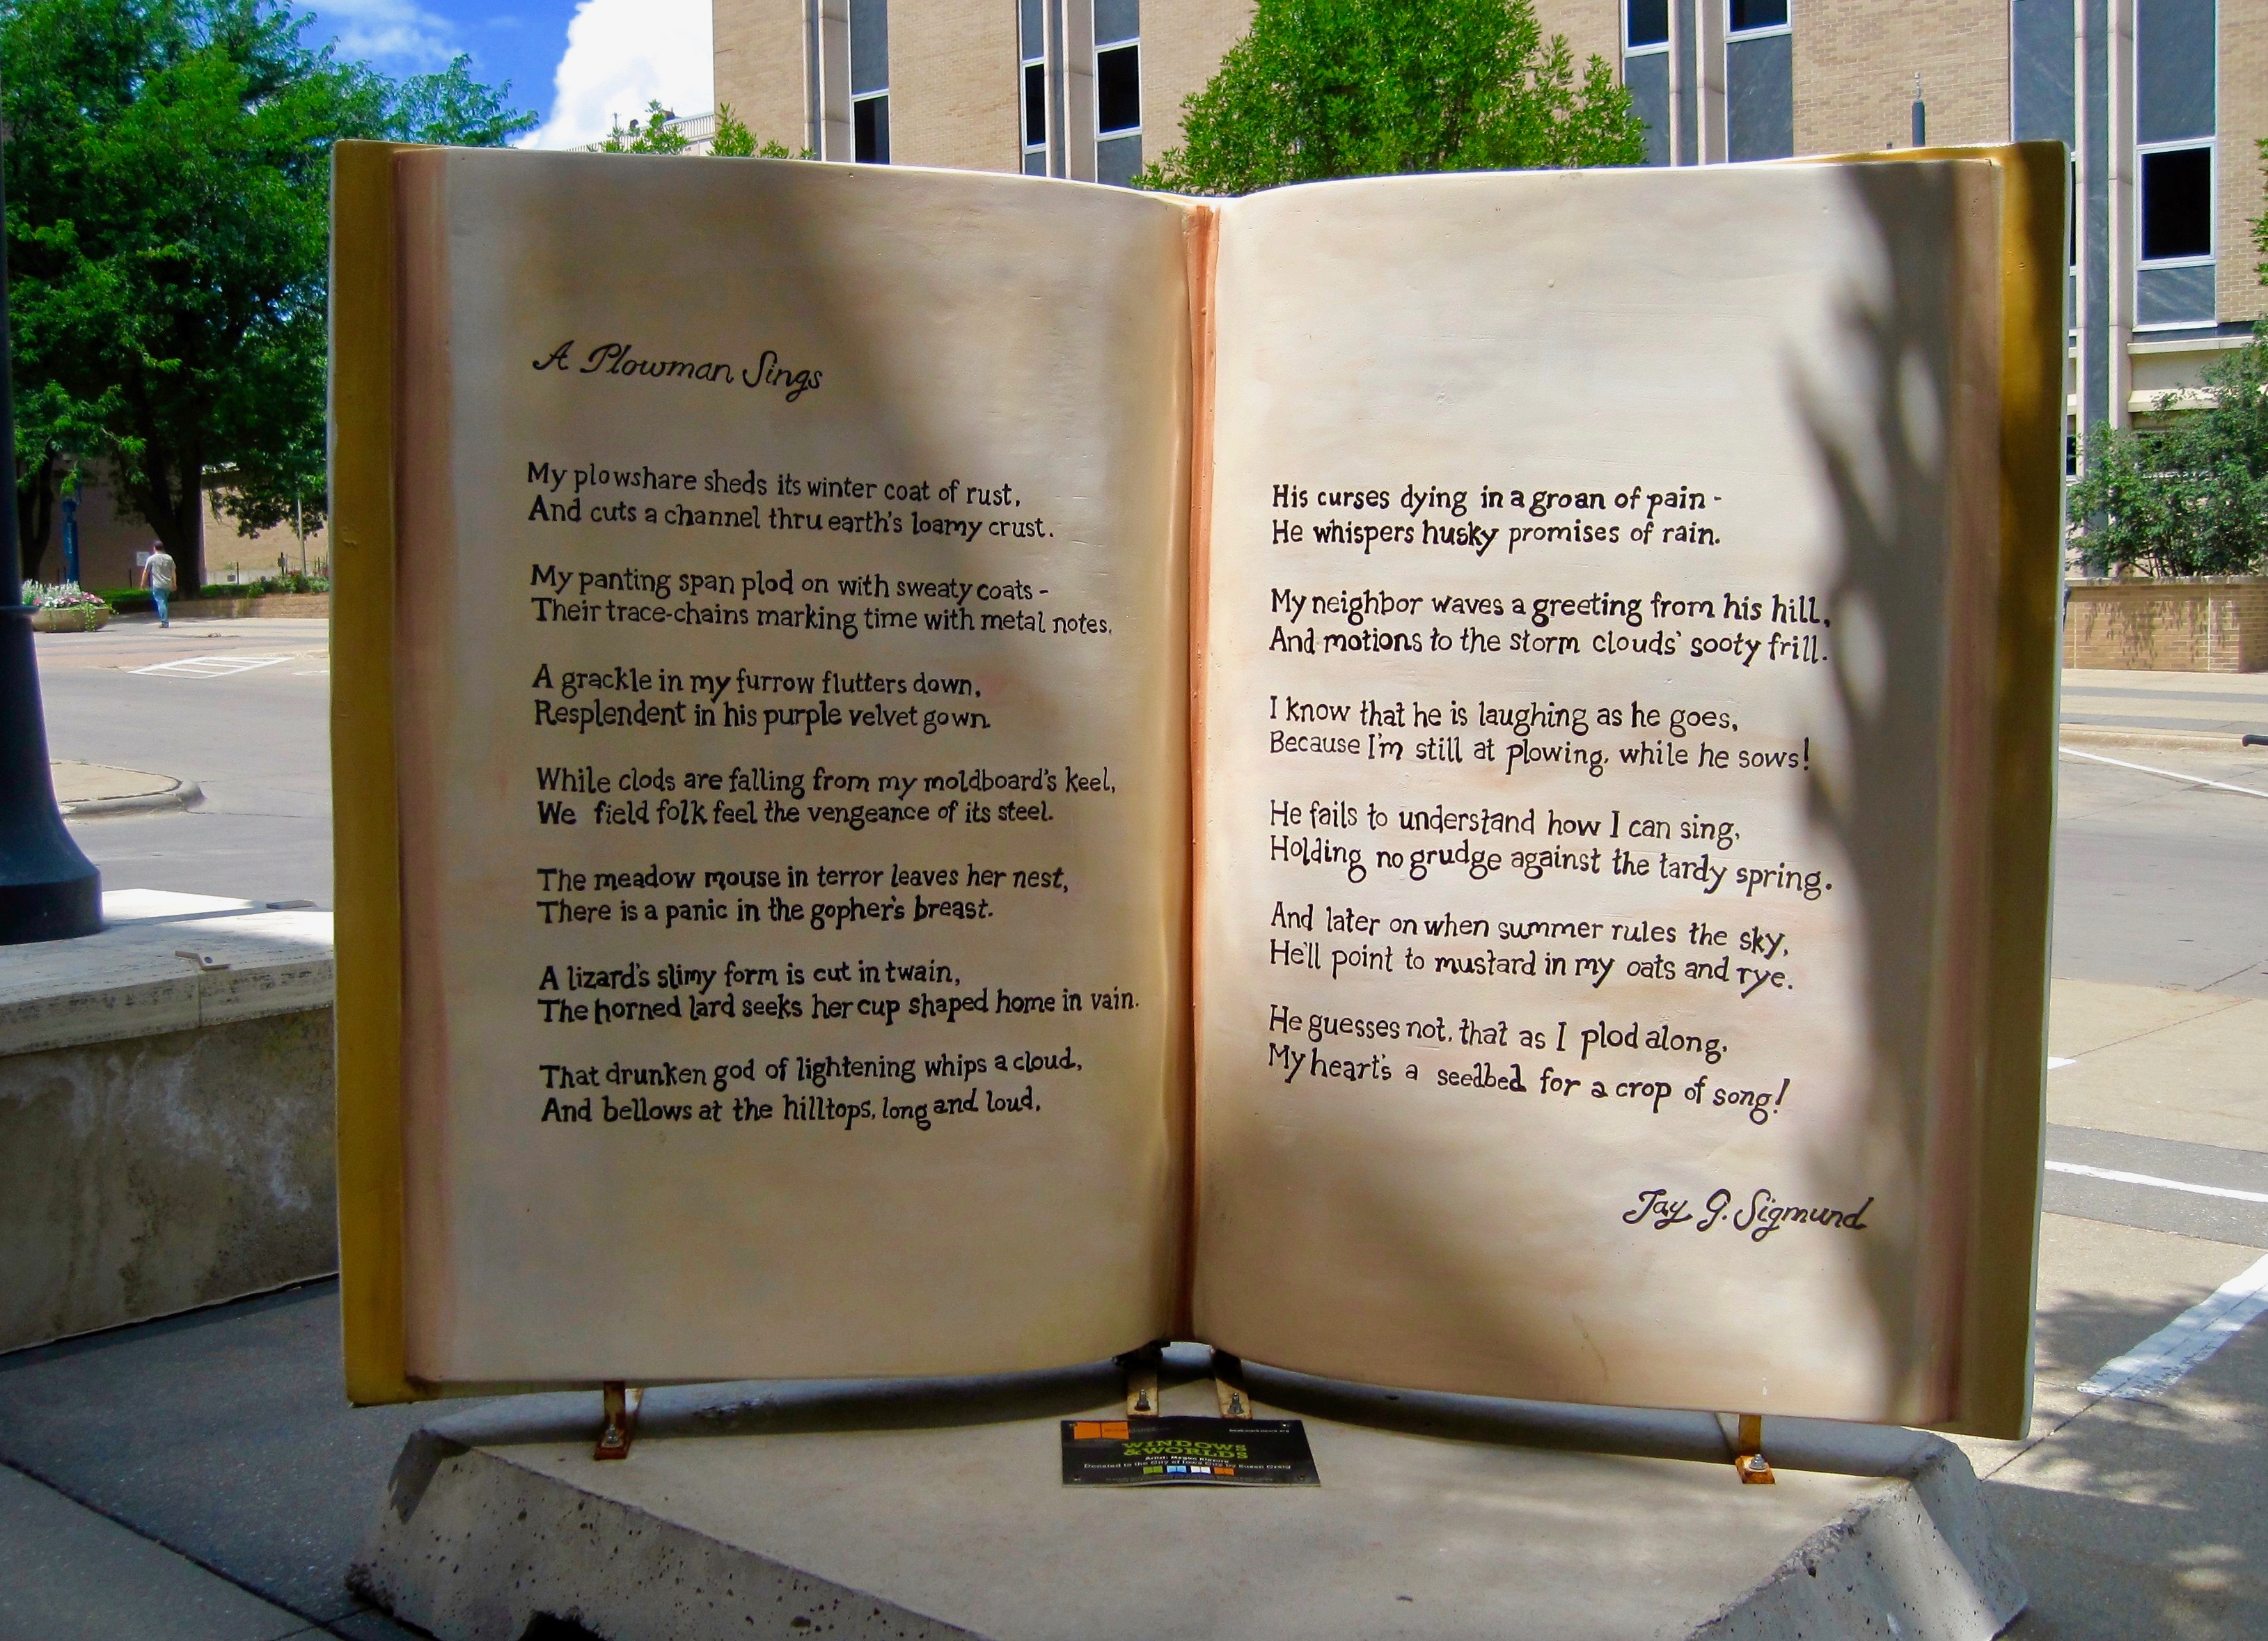 A Plowman Sings
My plowshare sheds its winter coat of rust,
And cuts a channel thru earth's loamy crust.
My panting span plod on with sweaty coats -
Their trace-chains marking time with metal notes.
A grackle in my furrow flutters down,
Resplendent in his purple velvet gown.
While clods are falling from my moldboard's keel,
We field folk feel the vengeance of its steel.
The meadow mouse in terror leaves her nest,
There is a panic in the gopher's breast.
A lizard's slimy form is cut in twain,
The horned lard seeks her cup shaped home in vain.
That drunken god of lightening whips a cloud,
And bellows at the hilltops, long and loud,
His curses dying in a groan of pain -
He whispers husky promises of rain.
My neighbor waves a greeting from his hill,
And motions to the storm clouds' sooty frill.
I know that he is laughing as he goes,
Because I'm still at plowing, while he sows!
He fails to understand how I can sing,
Holding no grudge against the tardy spring.
And later on when summer rules the sky,
He'll point to mustard in my oats and rye.
He guesses not, that as I plod along,
My heart's a seedbed for a crop of song!
Jay G. Sigmund
WINDOWS
& WORLDS
Artist: Megan
Donated to the City of Iowa City by Susan Craig